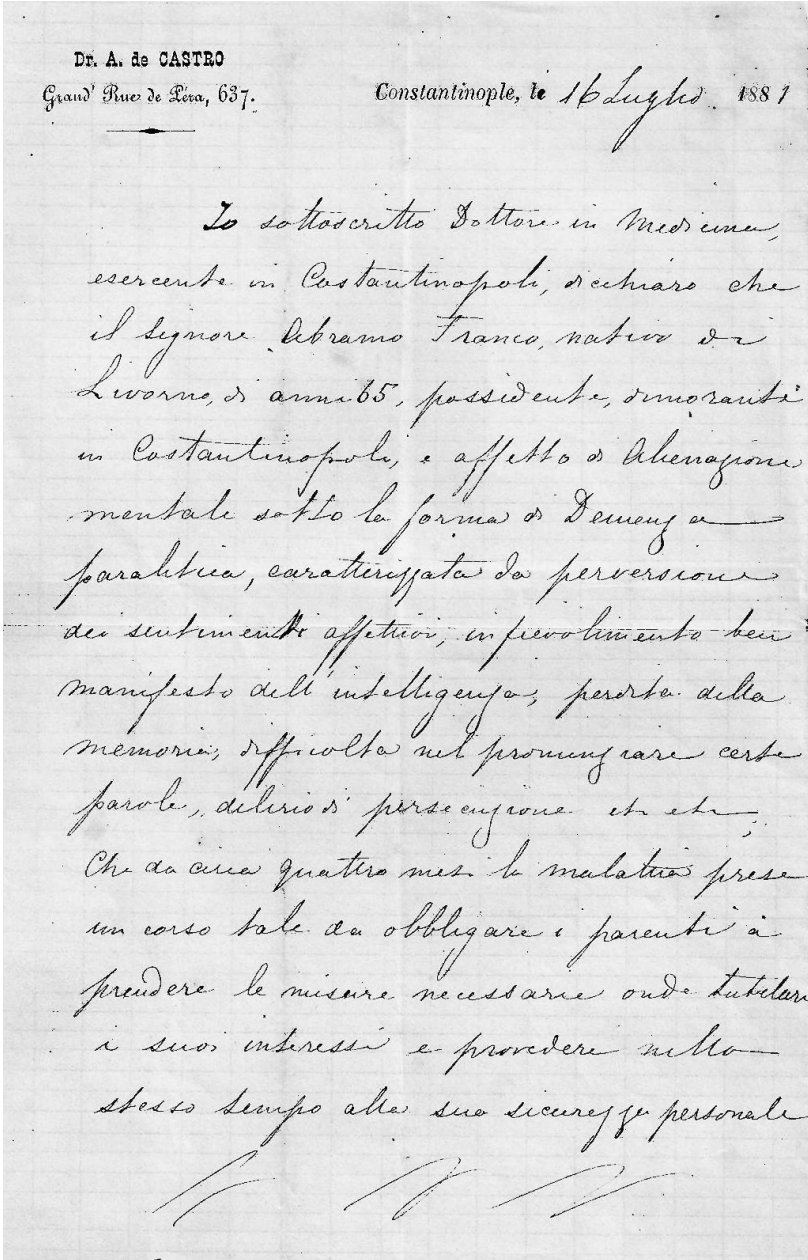 Dr. A. de CASTRO
Grand' Rue de Péra, 637.
Constantinople, le 16 Luglio 1881
Io sottoscritto Dottore in Medicina,
esercente in Costantinopoli, dichiaro che
il Signore Abramo Franco, nativo di
Livorno, di anni 65, possidente, dimorante
in Costantinopoli, e affetto di Alienazione
mentale sotto la forma di Demenza
paralitica, caratterizzata da perversione
dei sentimenti affettivi, infievolimento ben
manifesto dell'intelligenza, perdita della
memoria, difficolta nel pronunziare certe
parole, delirio di persecuzione etc etc;
Che da circa quattro mesi la malattia prese
un corso tale da obbligare i parenti a
prendere le misure necessarie onde tutelare
i suoi interessi e provedere nello
stesso tempo alla sua sicurezza personale